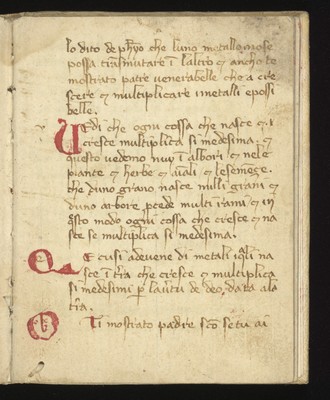 lo dito de phyo che luno metallo mose
possa trasmutare ī laltro & ancho te
mostrato patre venerabelle che a cre
scere & multiplicare i metalli e possi
belle.
Vedi che ogni cossa che nasce &
cresce multiplica si medesima. &
questo vedemo nuy ī albori & nele
piante & herbe & & le semēze.
che duno grano nasce milli grani &
duno arbore pcede multi rami & in
qsto modo ogni cossa che cresce & na
sce se multiplica si medesima.
Q E cusi advene di metali iquali na
sce ī tr̄a che cresce & multiplica
si medesimi p̱ lav̄tu de deo data ala
tr̄a.
O Ti mostrato padre sc̄o se tu ai